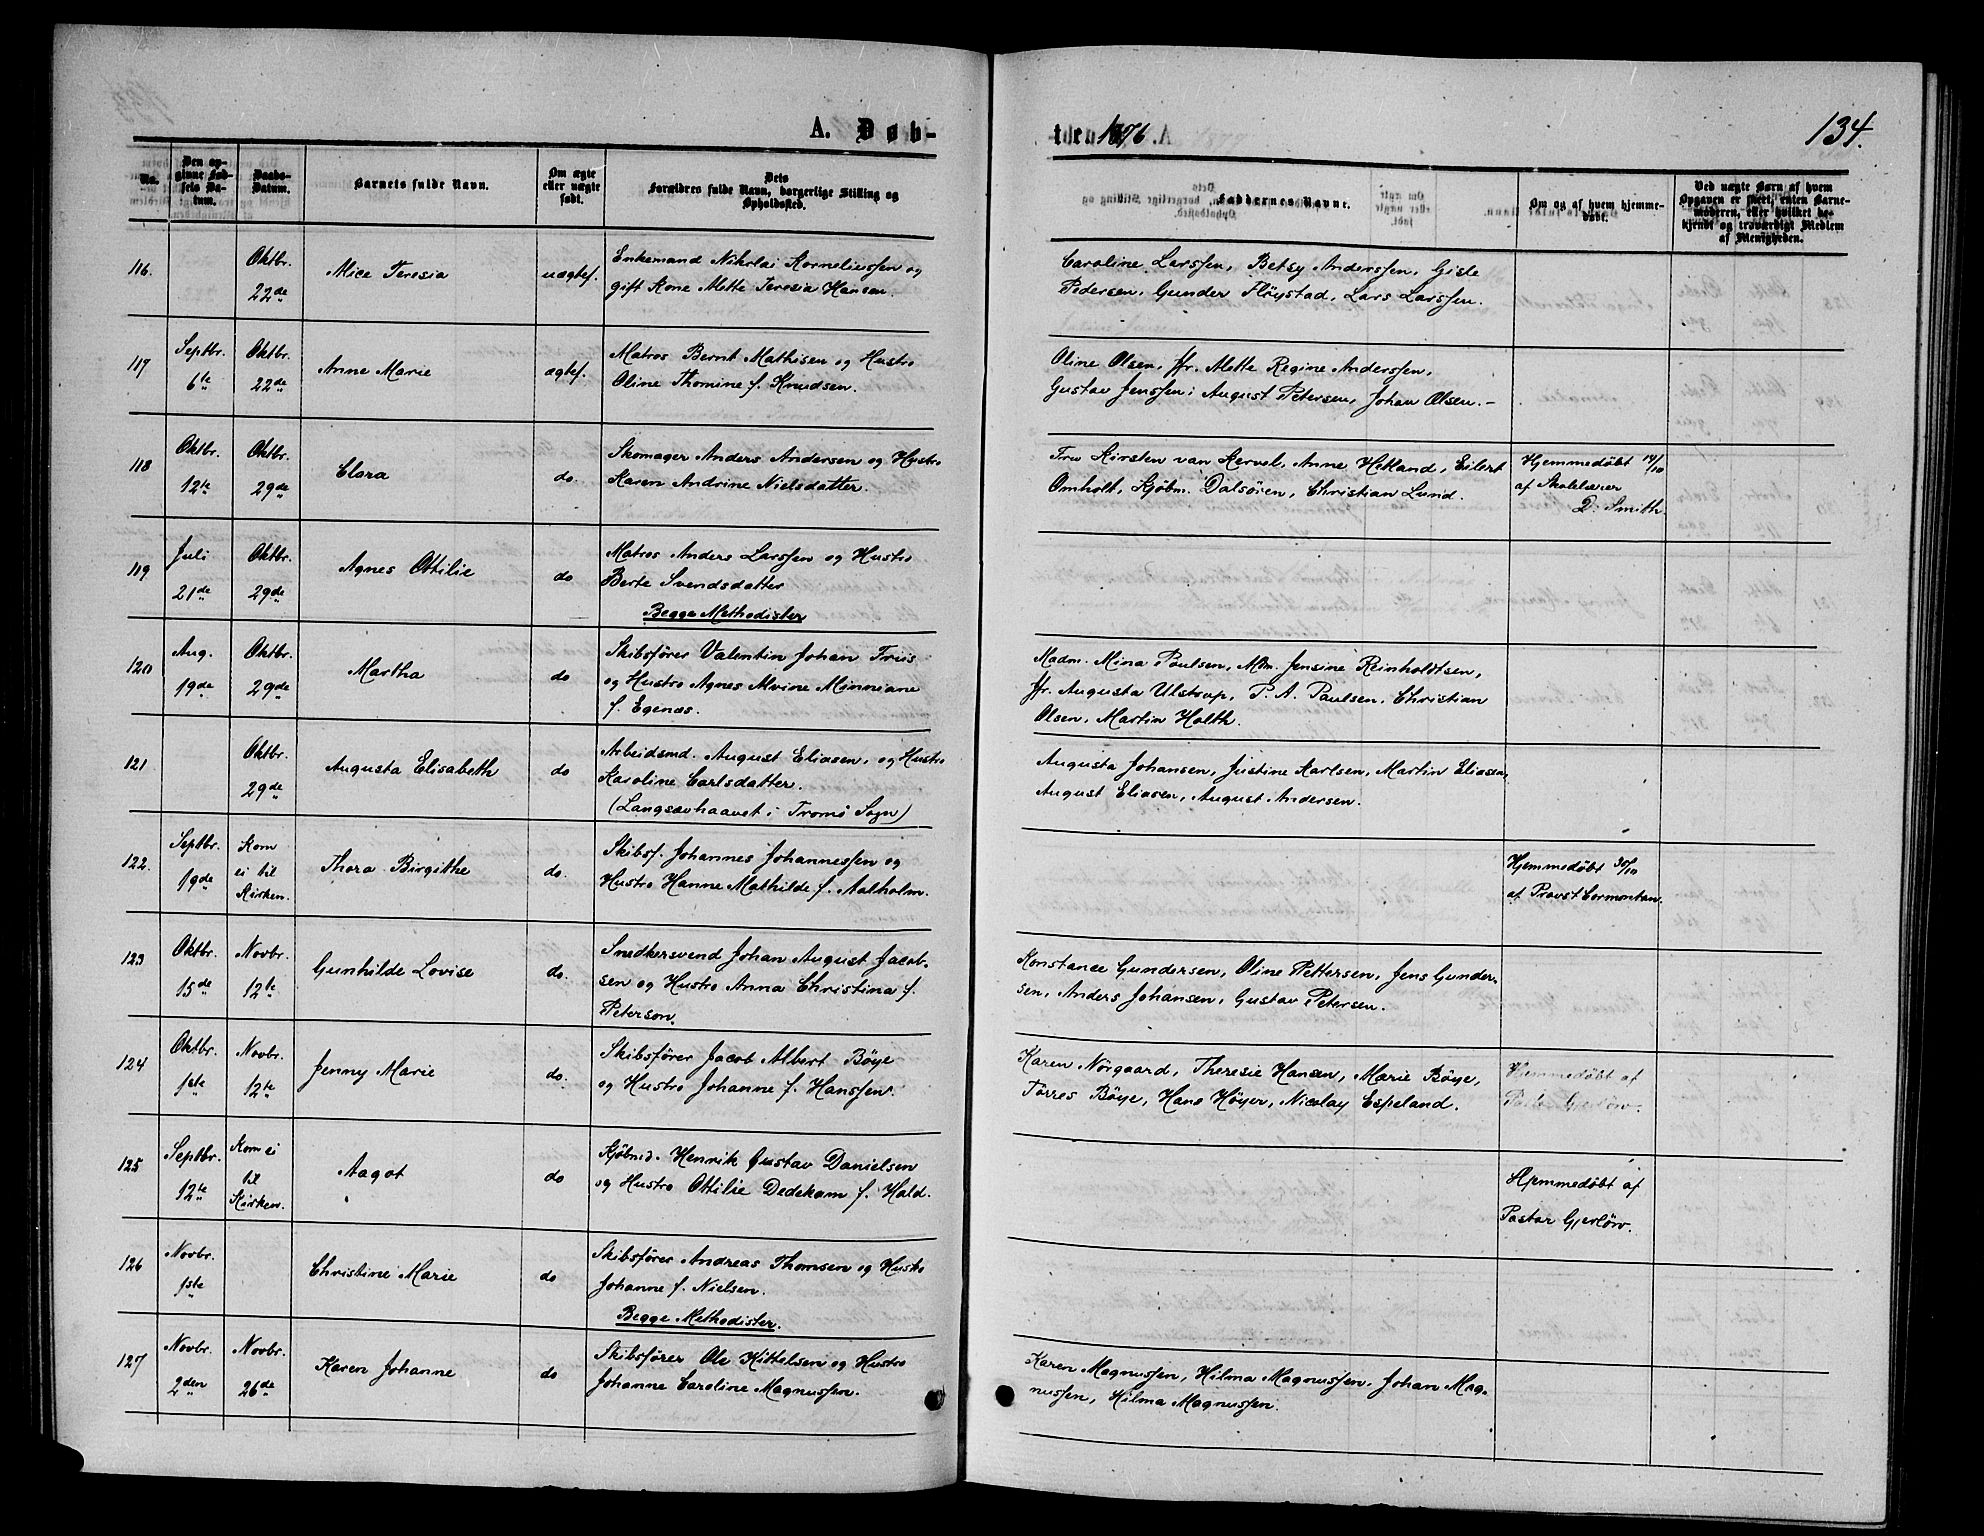 134.
A. Døb-
te i 1876.
No.
Den opginne Fødsels Datum.
Daabs-Datum.
Barnets fulde Navn.
Om ægte eller uægte født.
Dets
Forældres fulde Navn, borgerlige Stilling og Opholdssted.
Faddernes Navne.
Om og af hvem hjemmedøbt.
Ved uægte Børn af hvem Opgaven er skeet, enten Barnemoderen, eller hvilket bekjendt og troværdigt Medlem af Menigheden.
116.
Oktbr.
22de
Alice Teresia
uægtef.
Enkemand Nikolai Korneliussen og
gift Kone Mette Teresia Hansen.
Caroline Larssen, Betsy Anderssen, Gisle
Pedersen, Gunder Fløystad, Lars Larssen.
117
Septbr.
6te
Oktbr.
22de
Anne Marie
ægtef.
Matros Bernt Mathisen og Hustro
Oline Thomine f. Knudsen.
Oline Olsen, Jfr. Mette Regine Anderssen,
Gustav Jenssen, August Petersen, Johan Olsen.-
118
Oktbr.
12te
Oktbr.
29de
Clara
do.
Skomager Anders Andersen og Hustro
Karen Andrine Nielsdatter.
Fru Kirsten van Kervel, Anne Hetland, Eilert
Omholt, Kjøbm. Dalsören, Christian Lund.
Hjemmedøbt 14/10
af Skolelærer
D. Smith.
119
Juli
21de
Oktbr.
29de
Agnes Ottilie
do
Matros Anders Larssen og Hustro
Berte Svendsdatter
Begge Methodister
120
Aug.
19de
Oktbr.
29de
Martha
do
Skibsfører Valentin Johan Friis
og Hustro Agnes Alvine Minniane
f. Egenæs.
Madm. Mina Paulsen, Mdm. Jensine Reinholdtsen,
Jfr. Augusta Ulstrup, P. A. Paulsen, Christian
Olsen, Martin Holth.
121
Oktbr.
29de
Augusta Elisabeth
do
Arbeidsmd. August Eliasen, og Hustro
Karoline Carlsdatter.
(Langsævhaavet i Tromø Sogn)
Augusta Johansen, Justine Karlsen, Martin Eliasen,
August Eliasen, August Andersen.
122.
Septbr.
19de
Kom
ei til
Kirken.
Thora Birgithe
do.
Skibsf. Johannes Johannessen og
Hustro Hanne Mathilde f. Aalholm.
Hjemmedøbt 30/10
af Provst Cormontan.
123
Oktbr.
15de
Novbr.
12te
Gunhilde Lovise
do.
Snedkersvend Johan August Jacob-
sen og Hustro Anna Christina f.
Peterson.
Konstance Gundersen, Oline Pettersen, Jens Gunder-
sen, Anders Johansen, Gustav Petersen.
124
Oktbr.
1ste
Novbr.
12te
Jenny Marie
do.
Skibsfører Jacob Albert Böye
og Hustro Johanne f. Hanssen.
Karen Nörgaard, Theresie Hansen, Marie Böye,
Törres Böye, Hans Höyer, Nicolay Espeland.
Hjemmedøbt af
Pastor Gjerløw.
125
Septbr.
12te
Kom ei
til
Kirken.
Aagot
do
Kjøbmd. Henrik Gustav Danielsen
og Hustro Ottilie Dedekam f. Hald.
Hjemmedøbt af
Pastor Gjerløw.
126
Novbr.
1ste
Christine Marie
do
Skibsfører Andreas Thomsen og Hustro
Johanne f. Nielsen.
Begge Methodister.
127
Novbr.
2den
Novbr.
26de
Karen Johanne
do
Skibsfører Ole Kittelsen og Hustro
Johanne Caroline Magnussen.
Karen Magnussen, Hilma Magnussen, Johan Mag-
nussen, Hilma Magnussen.